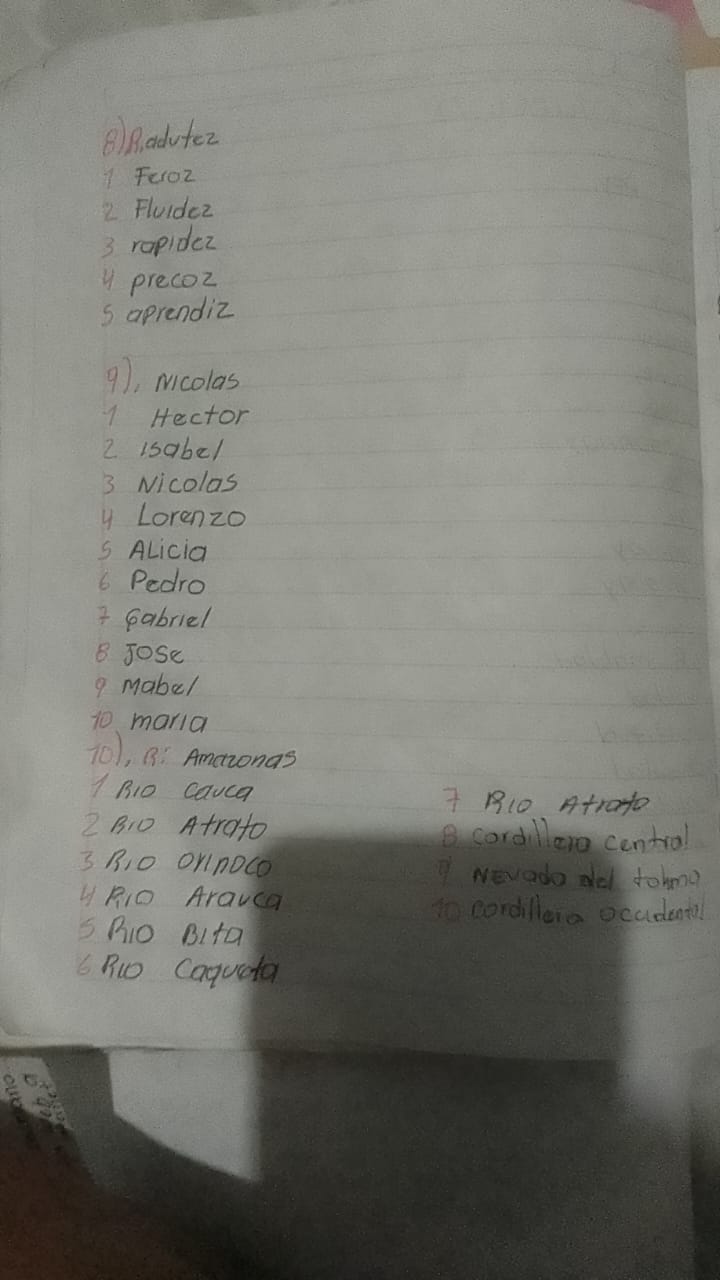 8) R, adultez
1 Feroz
2 Fluidez
3 rapidez
4 precoz
5 aprendiz
9), Nicolas
1 Hector
2 Isabel
3 Nicolas
4 Lorenzo
5 ALicia
6 Pedro
7 Gabriel
8 Jose
9 Mabel
10 maria
10), R: Amazonas
1 Rio Cauca
2 Rio Atrato
3 Rio Orinoco
4 Rio Arauca
5 Rio Bita
6 Rio Caqueta
7 Rio Atrato
8 Cordillera central
9 Nevado del tolima
10 cordillera occidental